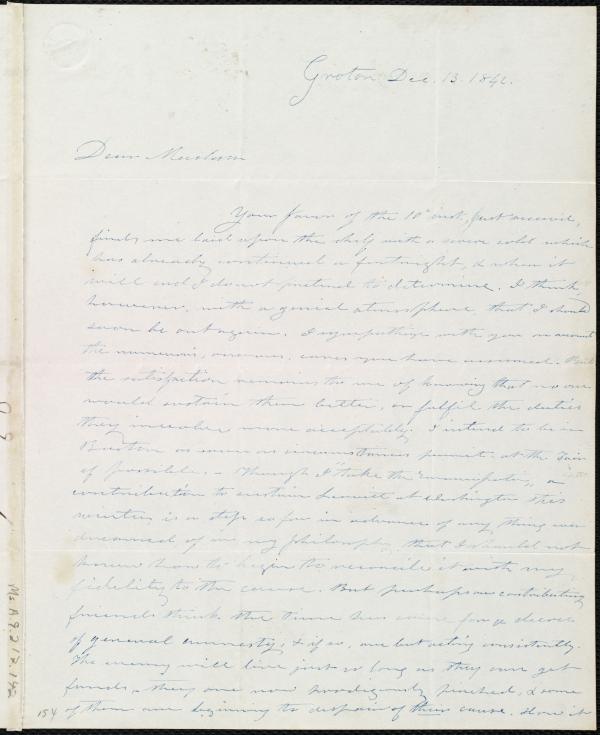 Groton Dec. 13. 1842.
Dear Madam
Your favor of the 10th inst, just received,
finds me laid upon the shelf with a severe cold which
has already continued a fortnight, & when it
will end I do not pretend to determine. I think,
however, with a genial atmosphere, that I should
soon be out again. I sympathise with you on account
the numerous, onerous, cares you have assumed. But
the satisfaction remains to me of knowing that no one
would sustain them better, or fulfil the duties
they involve more acceptibly. I intend to be in
Boston as soon as circumstances permit, at the Fair
if possible. - Though I take the Emancipator, a
contribution to sustain Leavitt at Washington this
winter is a step so far in advance of any thing ever
dreamed of in my philosophy, that I should not
know how to begin to reconcile it with my
fidelity to the cause. But perhaps our contributing
friends think the time has come for a decree
of general amnesty, & if so, are but acting consistently.
The enemy will live just so long as they can get
funds, they are now prodigiously pinched, & some
of them are beginning to despair of their cause. How it
154
Ms.A.9.2.17.142